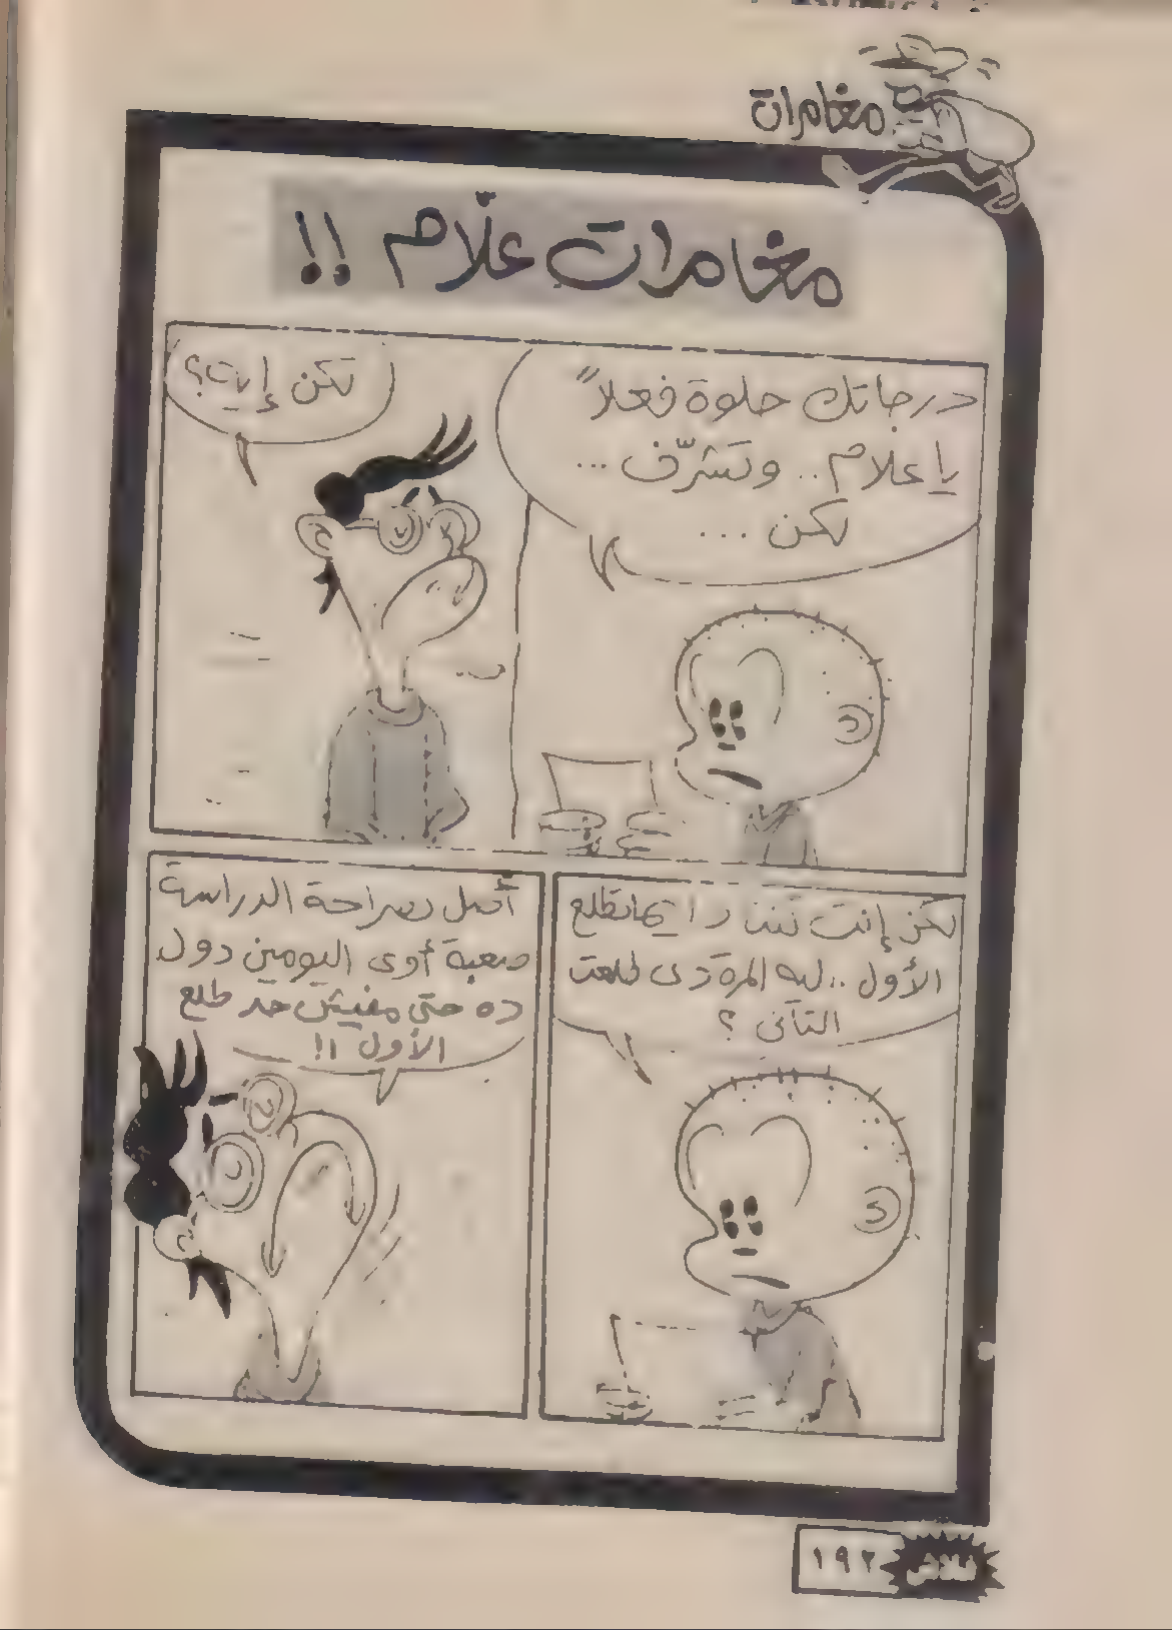 مغامرات
مغامرات علّام !!
درجاتك حلوة فعلاً
يا علام .. وتشرّف ...
لكن ...
لكن إيه؟
لكن إنت تننا دايماً بتطلع
الأول .. ليه المرة دى طلعت
التانى ؟
أصل بصراحة الدراسة
صعبة أوى اليومين دول
ده حتى مفيش حد طلع
الأول !!
فلاش
١٩٢